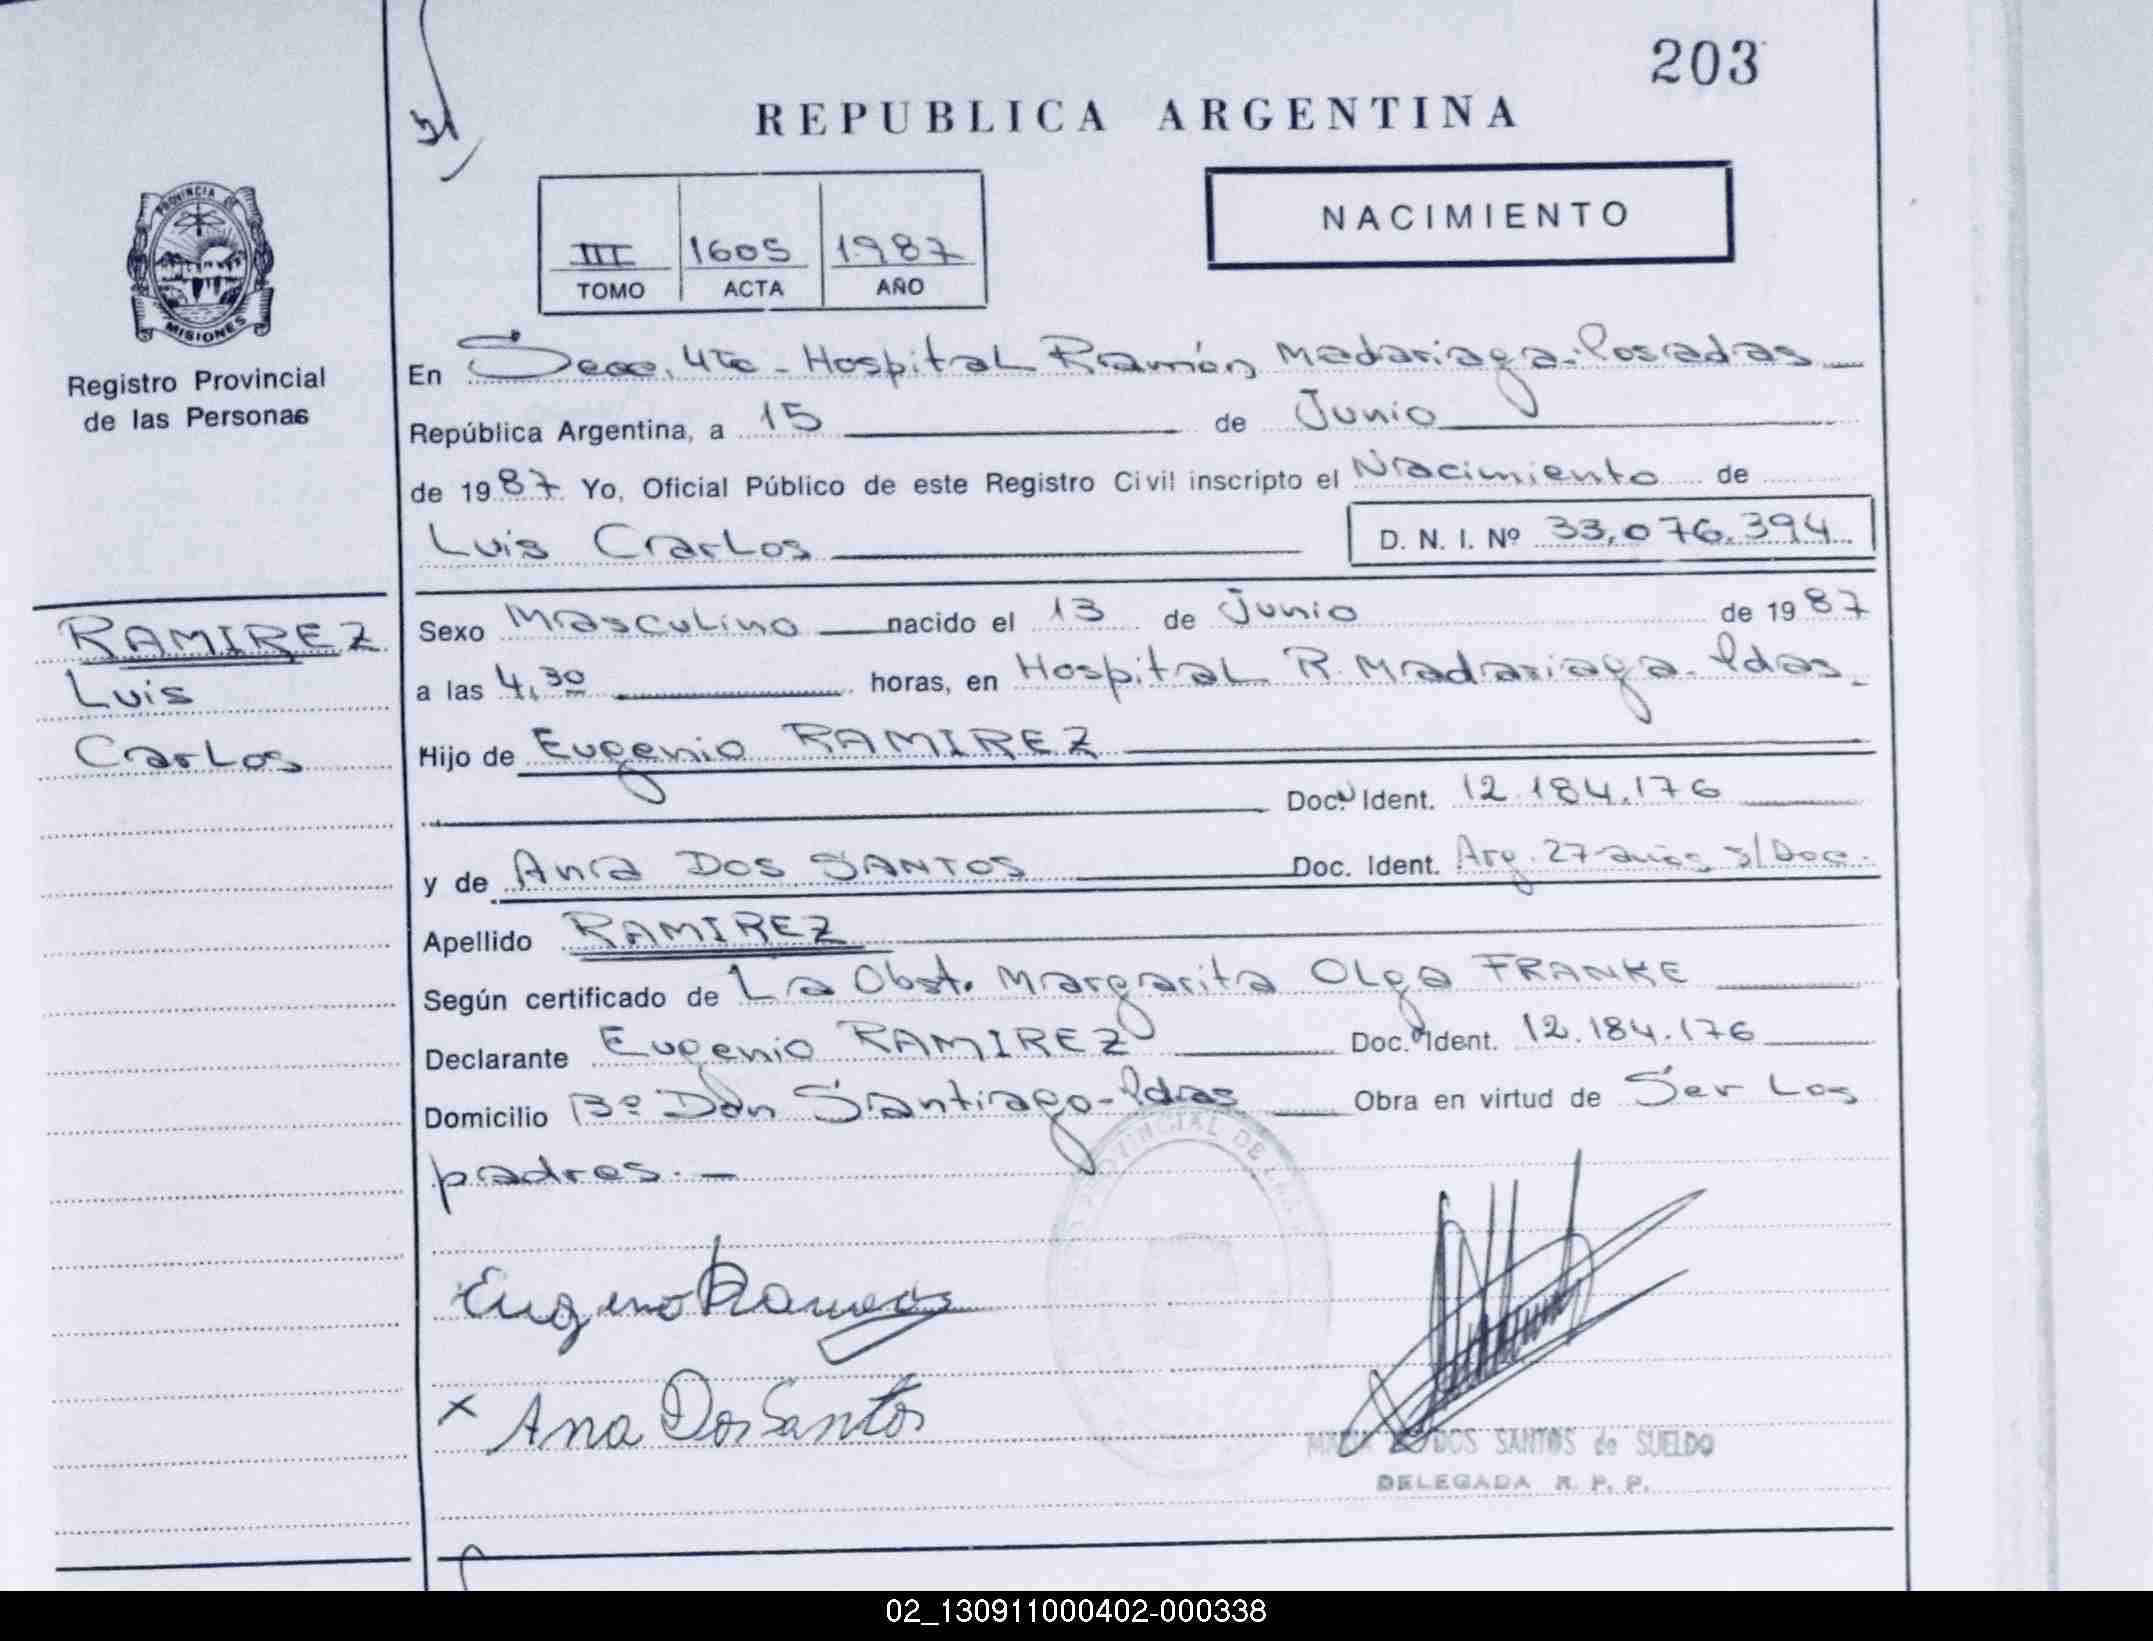 203
REPUBLICA ARGENTINA
NACIMIENTO
III 1605 1987
TOMO ACTA AÑO
PROVINCIA DE
MISIONES
Registro Provincial
de las Personas
RAMIREZ
Luis
Carlos
En Secc. 4ta - Hospital Ramón Madariaga - Posadas
República Argentina, a 15 de Junio
de 1987 Yo, Oficial Público de este Registro Civil inscripto el Nacimiento de
Luis Carlos D. N. I. Nº 33.076.394
Sexo Masculino nacido el 13 de Junio de 1987
a las 4,30 horas, en Hospital R. Madariaga - Pdas.
Hijo de Eugenio RAMIREZ
Doc. Ident. 12.184.176
y de Ana DOS SANTOS Doc. Ident. Arg. 27 años s/Doc.
Apellido RAMIREZ
Según certificado de La Obst. Margarita Olga FRANKE
Declarante Eugenio RAMIREZ Doc. Ident. 12.184.176
Domicilio Bº Don Santiago - Pdas Obra en virtud de Ser Los
padres. -
PROVINCIAL DE LAS
Eugenio Ramirez
x Ana Dos Santos
DOS SANTOS de SUELDO
DELEGADA R. P. P.
02_130911000402-000338